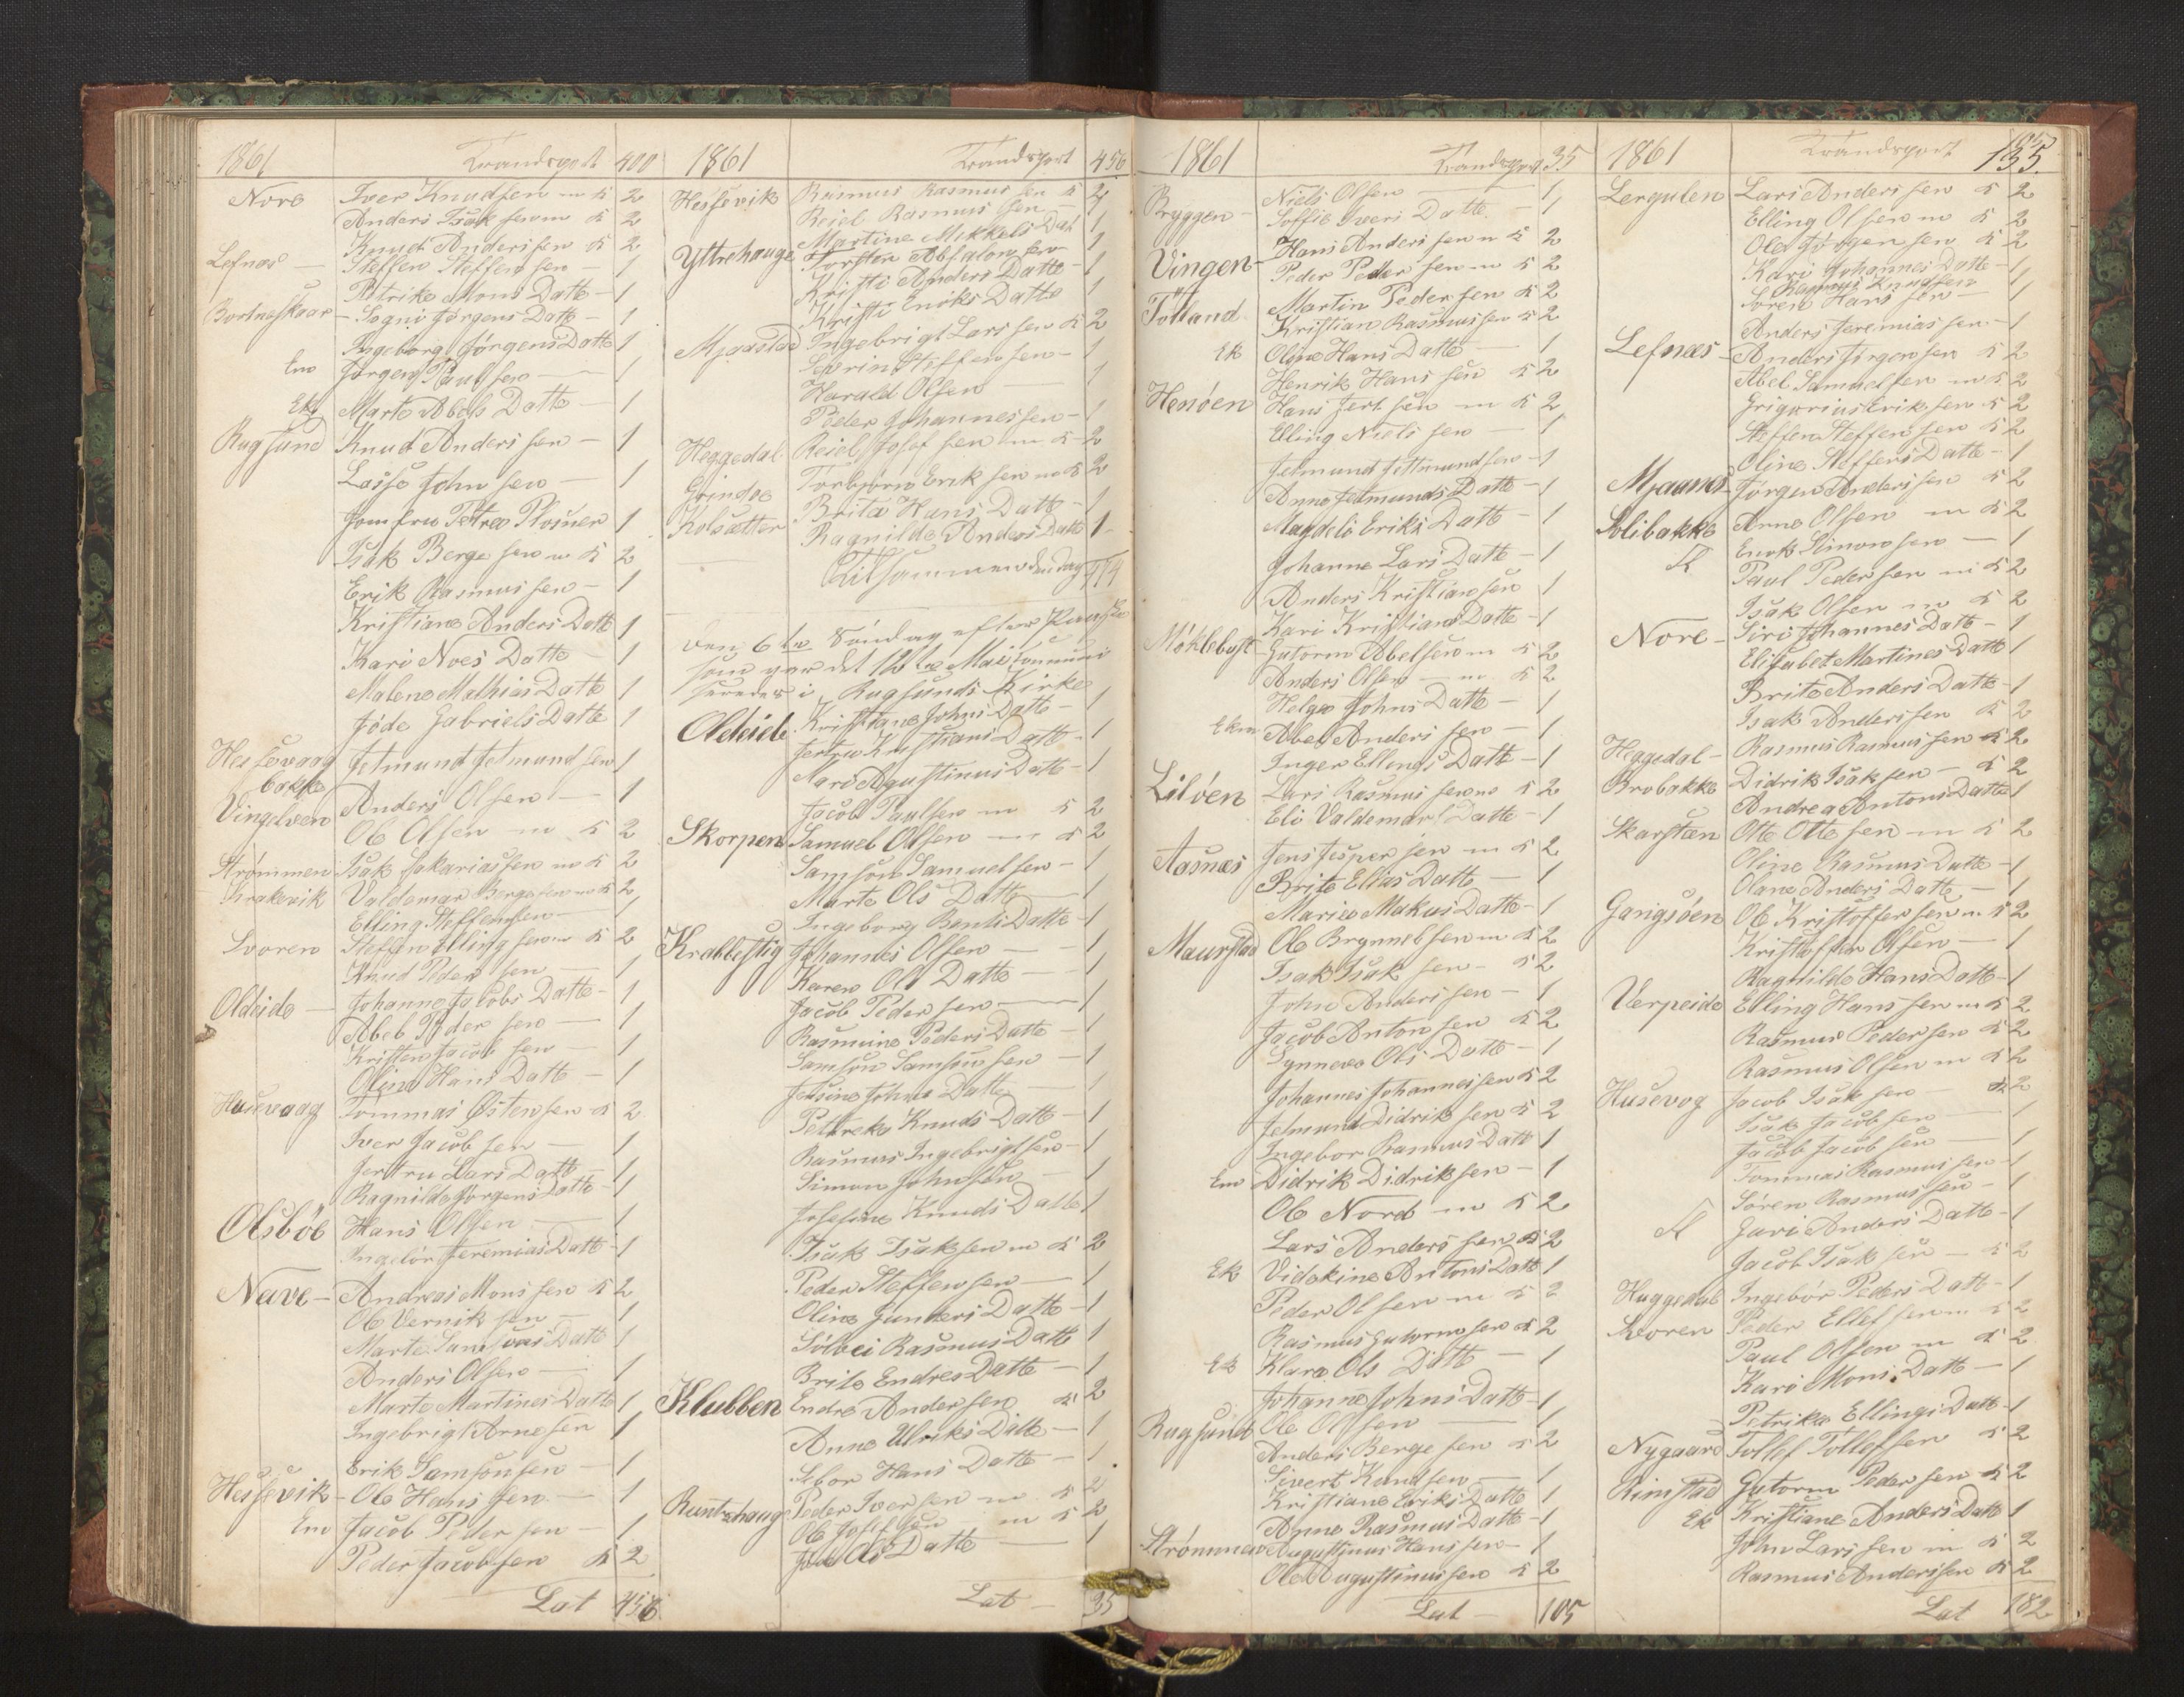 1861 Trandsport 400
Nore Iver Knudsen m K 2
Anders Isak sen m K 2
Knud Anders sen K 2
Lefnæs — Steffen Steffens sen — 1
Petrike Mons Datt — 1
Bortneskaar — Sogni Jørgens Datt — 1
Ingeborg Jørgens Datte 1
Em Jørgen Paulsen — 1
Ek Marte Abels Datte — 1
Rugsund Knud Anders sen — 1
Lasse John sen — 1
Jomfru Petrea 1
Isak Berge sen m K 2
Erik Rasmus sen — 1
Kristiane Anders Datt 1
Kari Noes Datte — 1
Malene Mathias Datte 1
Jøde Gabriels Datte 1
Hessevaag Jetmund Jetmund sen 1
bakke
Vingelven Anders Olsen — 1
Ole Olsen m K 2
Strømmen Isak Sakariassen m K 2
Krakevik Valdemar Berge sen m K 2
Elling Steffensen — 1
Svoren Steffen Elling sen m K 2
Knud Peder sen — 1
Oldeide — Johanne Jacobs Datte — 1
Abel Peder sen — 1
Kristen Jacob sen — 1
Oline Hans Datte — 1
Husevaag Tommas Østensen K 2
Iver Jacob sen — 1
Jertru Lars Datte — 1
Ragnilde Jørgens Datte — 1
Olsbøe Hans Olsen — 1
Ingebor Jeremias Datte — 1
Nave — Andreas Mons sen K 2
Ole Vernik sen — 1
Marte Samsons Datte 1
Anders Olsen — 1
Marte Martines Datte 1
Ingebrigt Arnesen 1
Erik Samsonsen — 1
Hessevik — Ole Hans sen — 1
Em Jacob Peder sen — 1
Peder Jacobsen K 2
Lat 456
1861 Trandsport 456
Hessevik Rasmus Rasmus sen K 2
Reiel Rasmus sen — 1
Martine Mikkels Dat 1
Yttrehauge Torsten Absalonsen 1
Kristi Anders Datte — 1
Kristi Eriks Datte 1
Mjaastad Ingebrigt Lars sen K 2
Severin Steffensen — 1
Harald Olsen — 1
Peder Johannessen — 1
Heggedal Reiel Josef sen m K 2
Grindøe Torbjørn Erik sen m K 2
Kolsætter Brita Hans Datte — 1
Ragnilde Anders Datte 1
Tilsammen den dag 474
Den 6te Søndag efter Paaske
som var det 12te Mai
i Rugsunds Kirke
Oldeide Kristiane Johns Datte — 1
Jertru Kristians Datt — 1
Agustinus Datte — 1
Jacob Paulsen m K 2
Skorpen Samuel Olsen m K 2
Samson Samuelsen — 1
Marte Ols Datte 1
Ingeborg Bents Datte — 1
Krablestig Johannes Olsen — 1
Karen Ols Datte — 1
Jacob Peder sen — 1
Rasmine Peders Datte — 1
Samson Samsonsen — 1
Jensine Johns Datte — 1
Petreke Knuds Datt — 1
Rasmus Ingebrigtsen — 1
Simon Johnsen — 1
Josefine Knuds Datte 1
Isak Isaksen m K 2
Peder Steffensen — 1
Oline Gunders Datte — 1
Sølvei Rasmus Datt 1
Brite Endres Datte — 1
Klubben Endre Andersen K 2
Anne Ulriks Datte — 1
Hans Datte — 1
Runtehaug Peder Iversen m K 2
Ole Josefsen m K 2
Ols Datte — 1
Lat — 35
1861 Trandsport 35
Bryggen — Niels Olsen — 1
Soffie Ivers Datte — 1
Vingen — Hans Anders sen m K 2
Peder Peder sen m K 2
Totland Martin Pedersen K 2
Kristian Rasmussen K 2
Ek Oline Hans Datte — 1
Henrik Hans sen K 2
Henøen Hans Jert sen m K 2
Elling Niels sen — 1
Jetmund Jetmundsen — 1
Anne Jetmunds Datte — 1
Magdeli Eriks Datt — 1
Johanne Lars Datte — 1
Anders Kristiansen 1
Kari Kristians Datte — 1
Møklebost — Gutorm Abelsen m K 2
Anders Olsen — m K 2
Helge Johns Datte — 1
Ekm Abel Anders sen — 1
Inger Ellings Datt — 1
Liløen Lars Rasmus sen m K 2
Eli Valdemar Datte — 1
Aasnæs Jens Jesper sen m K 2
Brite Elias Datte — 1
Marie Makus Datte — 1
Maurstad Ole Brynnelsen m K 2
Isak Isak sen — K 2
John Anders sen — 1
Jacob Anton sen K 2
Synneve Ols Datte — 1
Johannes Johannessen K 2
Jetmund Didrik sen K 2
Ingebor Rasmus Datt 1
Em Didrik Didriksen — 1
Ole Nord m K 2
Lars Anders sen K 2
Ek Vidikine Antons Datt 1
Peder Olsen m K 2
Rasmus Gutormsen K 2
Ek Klare Ols Datte — 1
Johanne Johns Datt — 1
Rugsund Ole Olsen — 1
Anders Berge sen K 2
Sivert Knudsen — 1
Kristiane Eriks Datte 1
Anne Rasmus Datte — 1
Strømmen Augustinus Hanssen — 1
Ole Augustinussen K 2
Lat — 105
1861 Trandsport 105
135
Lergulen Lars Anders sen K 2
Elling Olsen m K 2
Ole Jørgen sen K 2
Kari Johannes Datte — 1
Rasmus Knudsen 1
Søren Hans sen — 1
Anders Jeremiassen — 1
Lefnæs — Anders Jørgensen K 2
Abel Samuelsen m K 2
Grigorius Eriksen K 2
Steffen Steffens sen K 2
Oline Steffens Datte — 1
Mjaanes — Jørgen Anders sen K 2
Solibakke Arne Olsen m K 2
Enok Simonsen — 1
Paul Peder sen m K 2
Isak Olsen m K 2
Nore — Siri Johannes Datt — 1
Elisabet Martines Datte 1
Brite Anders Datte — 1
Isak Anderssen K 2
Heggedal — Rasmus Rasmussen K 2
Brobakke Didrik Isaksen — K 2
Andrea Antons Datte 1
Skarsten Otte Ottesen m K 2
Oline Rasmus Datte — 1
Olane Anders Datte — 1
Gangsøen Ole Kristoffersen m K 2
Kristoffer Olsen — 1
Ragnilde Hans Datt — 1
Verpeide Elling Hans sen m K 2
Rasmus Pedersen K 2
Rasmus Olsen m K 2
Husevog Jacob Isak sen — K 2
Isak Jacobsen — 1
Jacob Jacobsen — 1
Tommas Rasmussen — 1
Søren Rasmussen — 1
Guri Anders Datte — 1
Jacob Isaksen — K 2
Huggedal Ingebor Peders Datt — 1
Svoren Peder Ellefsen m K 2
Paul Olsen m K 2
Kari Mons Datte — 1
Petrike Ellings Datt — 1
Nygaard Tollef Tollefsen K 2
Rimstad Gutorm Peder sen K 2
Ek Kristiane Anders Datte 1
John Lars sen m K 2
Rasmus Anderssen K 2
Lat 182